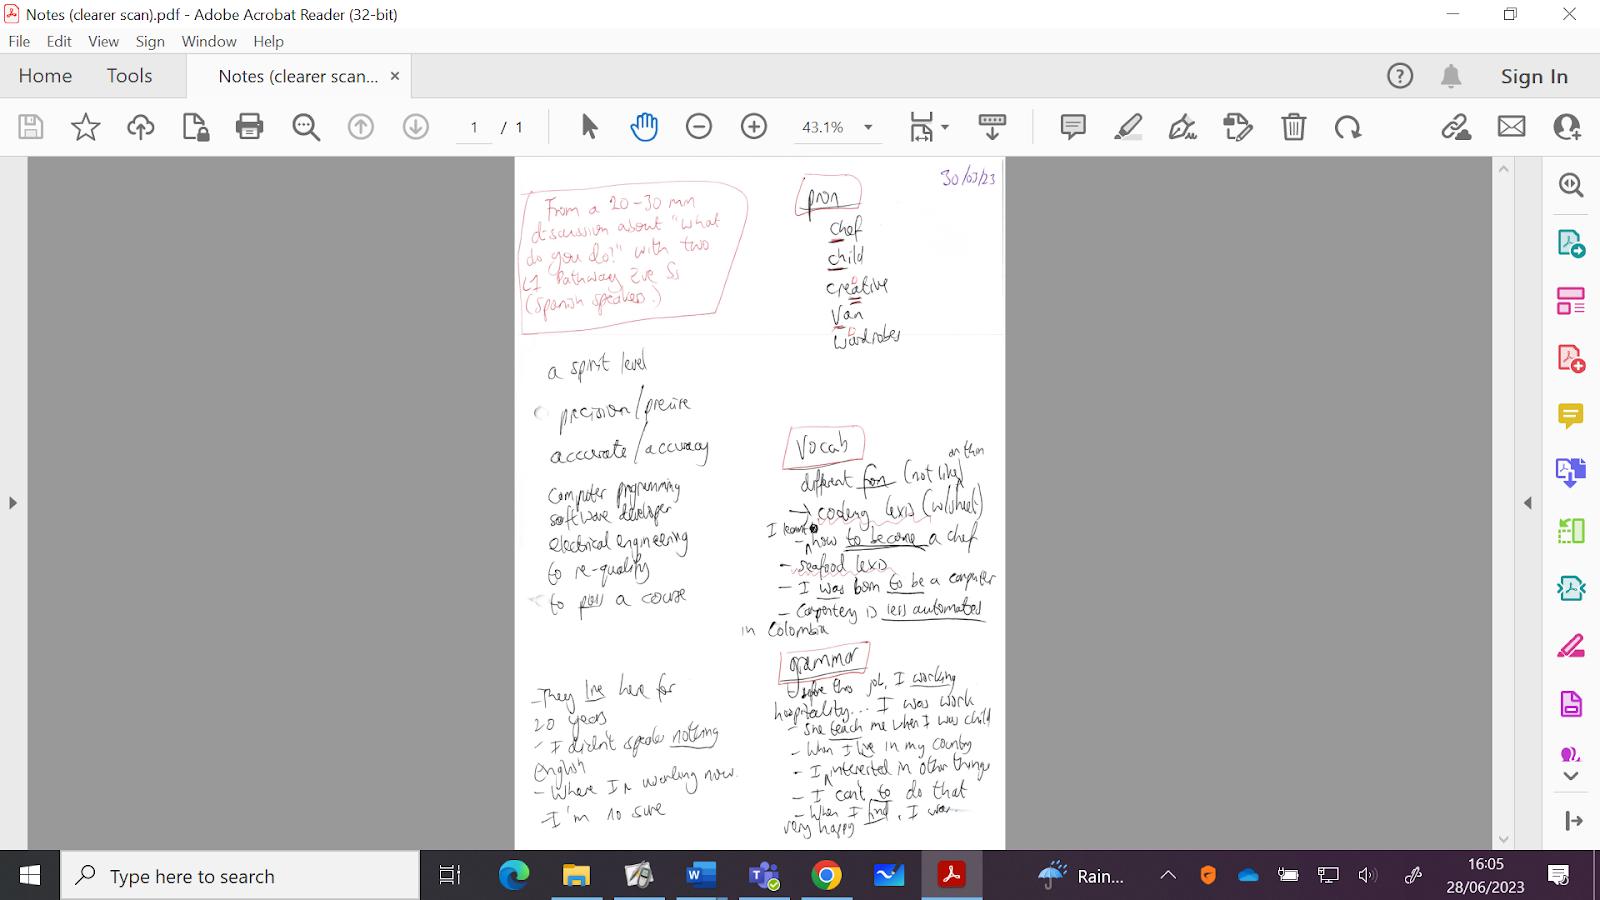 Notes (clearer scan).pdf - Adobe Acrobat Reader (32-bit)
File Edit View Sign Window Help
Home Tools Notes (clearer scan... × Sign In
1 / 1 43.1%
30/03/23
From a 20-30 min
discussion about "what
do you do?" with two
L1 Pathway Eve Ss
(Spanish speakers.)
pron
chef
child
creative
Van
wardrobes
a spirit level
precision/precise
accurate/accuracy
computer programming
software developer
electrical engineering
to re-qualify
to pass a course
Vocab
different from (not like)
or than
→ coding lexis (w/sheet)
I learnt
- how to become a chef
- seafood lexis
- I was born to be a computer
- Carpentery is less automates
in Colombia
grammar
Before this job, I working
hospitality... I was work
- She teach me when I was child
- When I live in my country
- I interested in other things
- I can't to do that
- When I find, I was
very happy
- They live here for
20 years
- I didn't speaker nothing
English
- Where I working now.
- I'm no sure
Type here to search
Rain...
16:05
28/06/2023